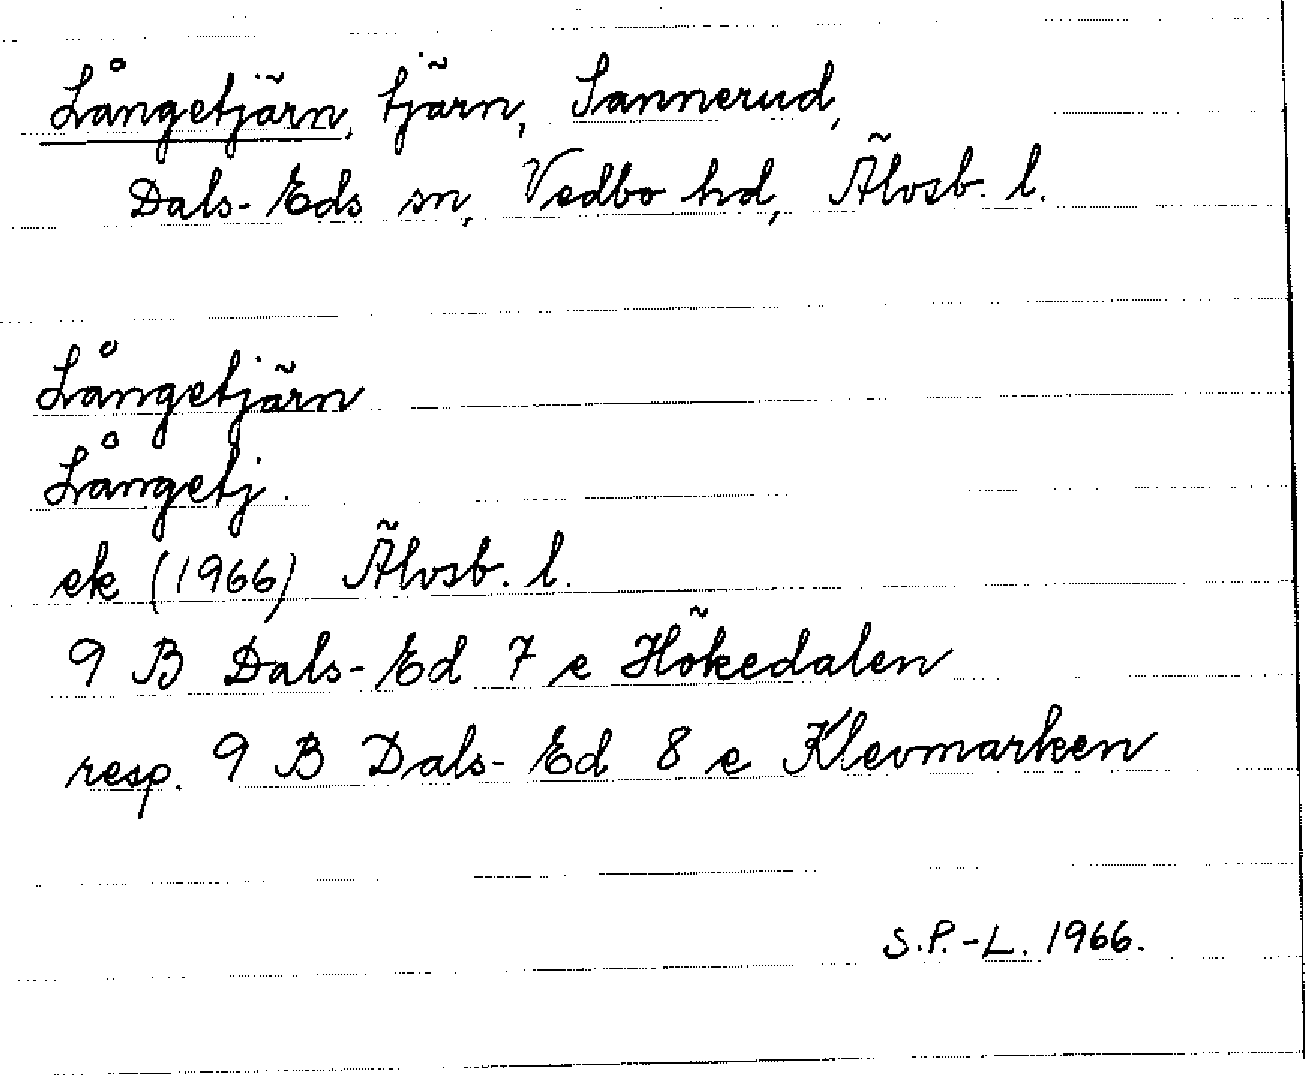 Långetjärn, tjärn, Sannerud,
Dals-Eds sn, Vedbo hd, Älvsb. l.
Långetjärn
Långetj.
ek (1966) Älvsb. l.
9 B Dals-Ed 7 e Hökedalen
resp. 9 B Dals-Ed 8 e Klevmarken
S.P.-L. 1966.